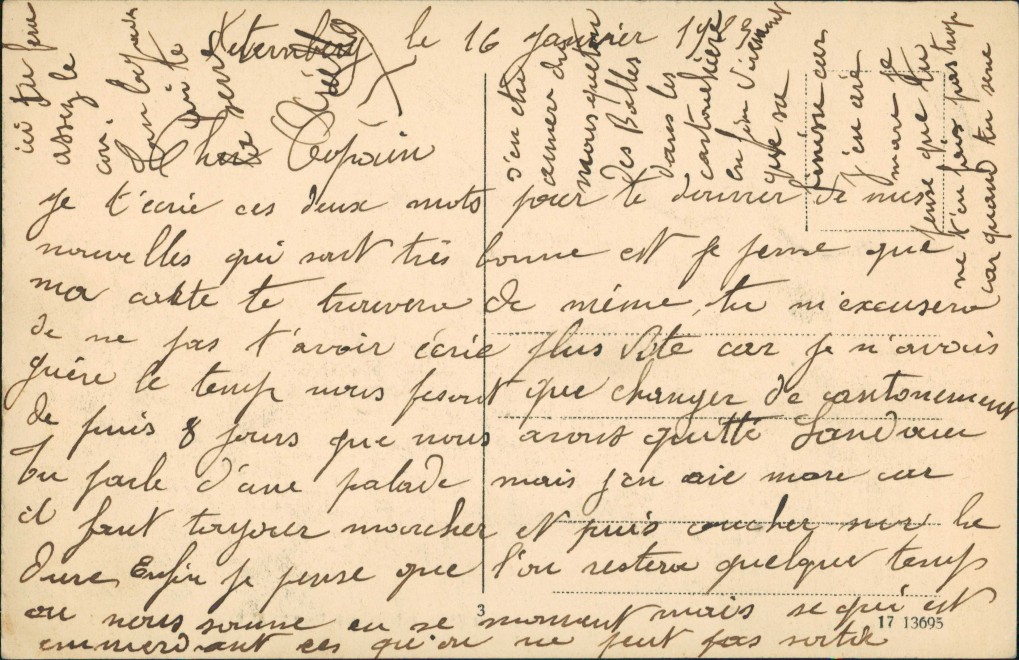 le 16 Janvier 19
Cher Copain
Je t'écrie ces deux mots pour te donner de mes
nouvelles qui sont très bonne est je pense que
ma carte te trouvera de même, tu m'excusera
de ne pas t'avoir écrie plus Vite car je n'avais
guère le temp nous fesont que changer de cantonement
de puis 8 jours que nous avons quitté Landau
tu parle d'une palade mais j'en aie mare car
il faut toujour marcher et puis coucher sur la
dure, Enfin je pense que l'on restera quelque temps
ou nous somme en se moment mais se qui est
emmerdant ces qu'on ne peut pas sortir
d'en chié
mousqueton
des Balles
dans les
cartouchière
enfin vivement
que sa
finisse car
j'en aie
mare je
pense que tu
ne t'en fais pas trop
car quand tu sene
ici tu fera
assez le
con.
3
17 13695